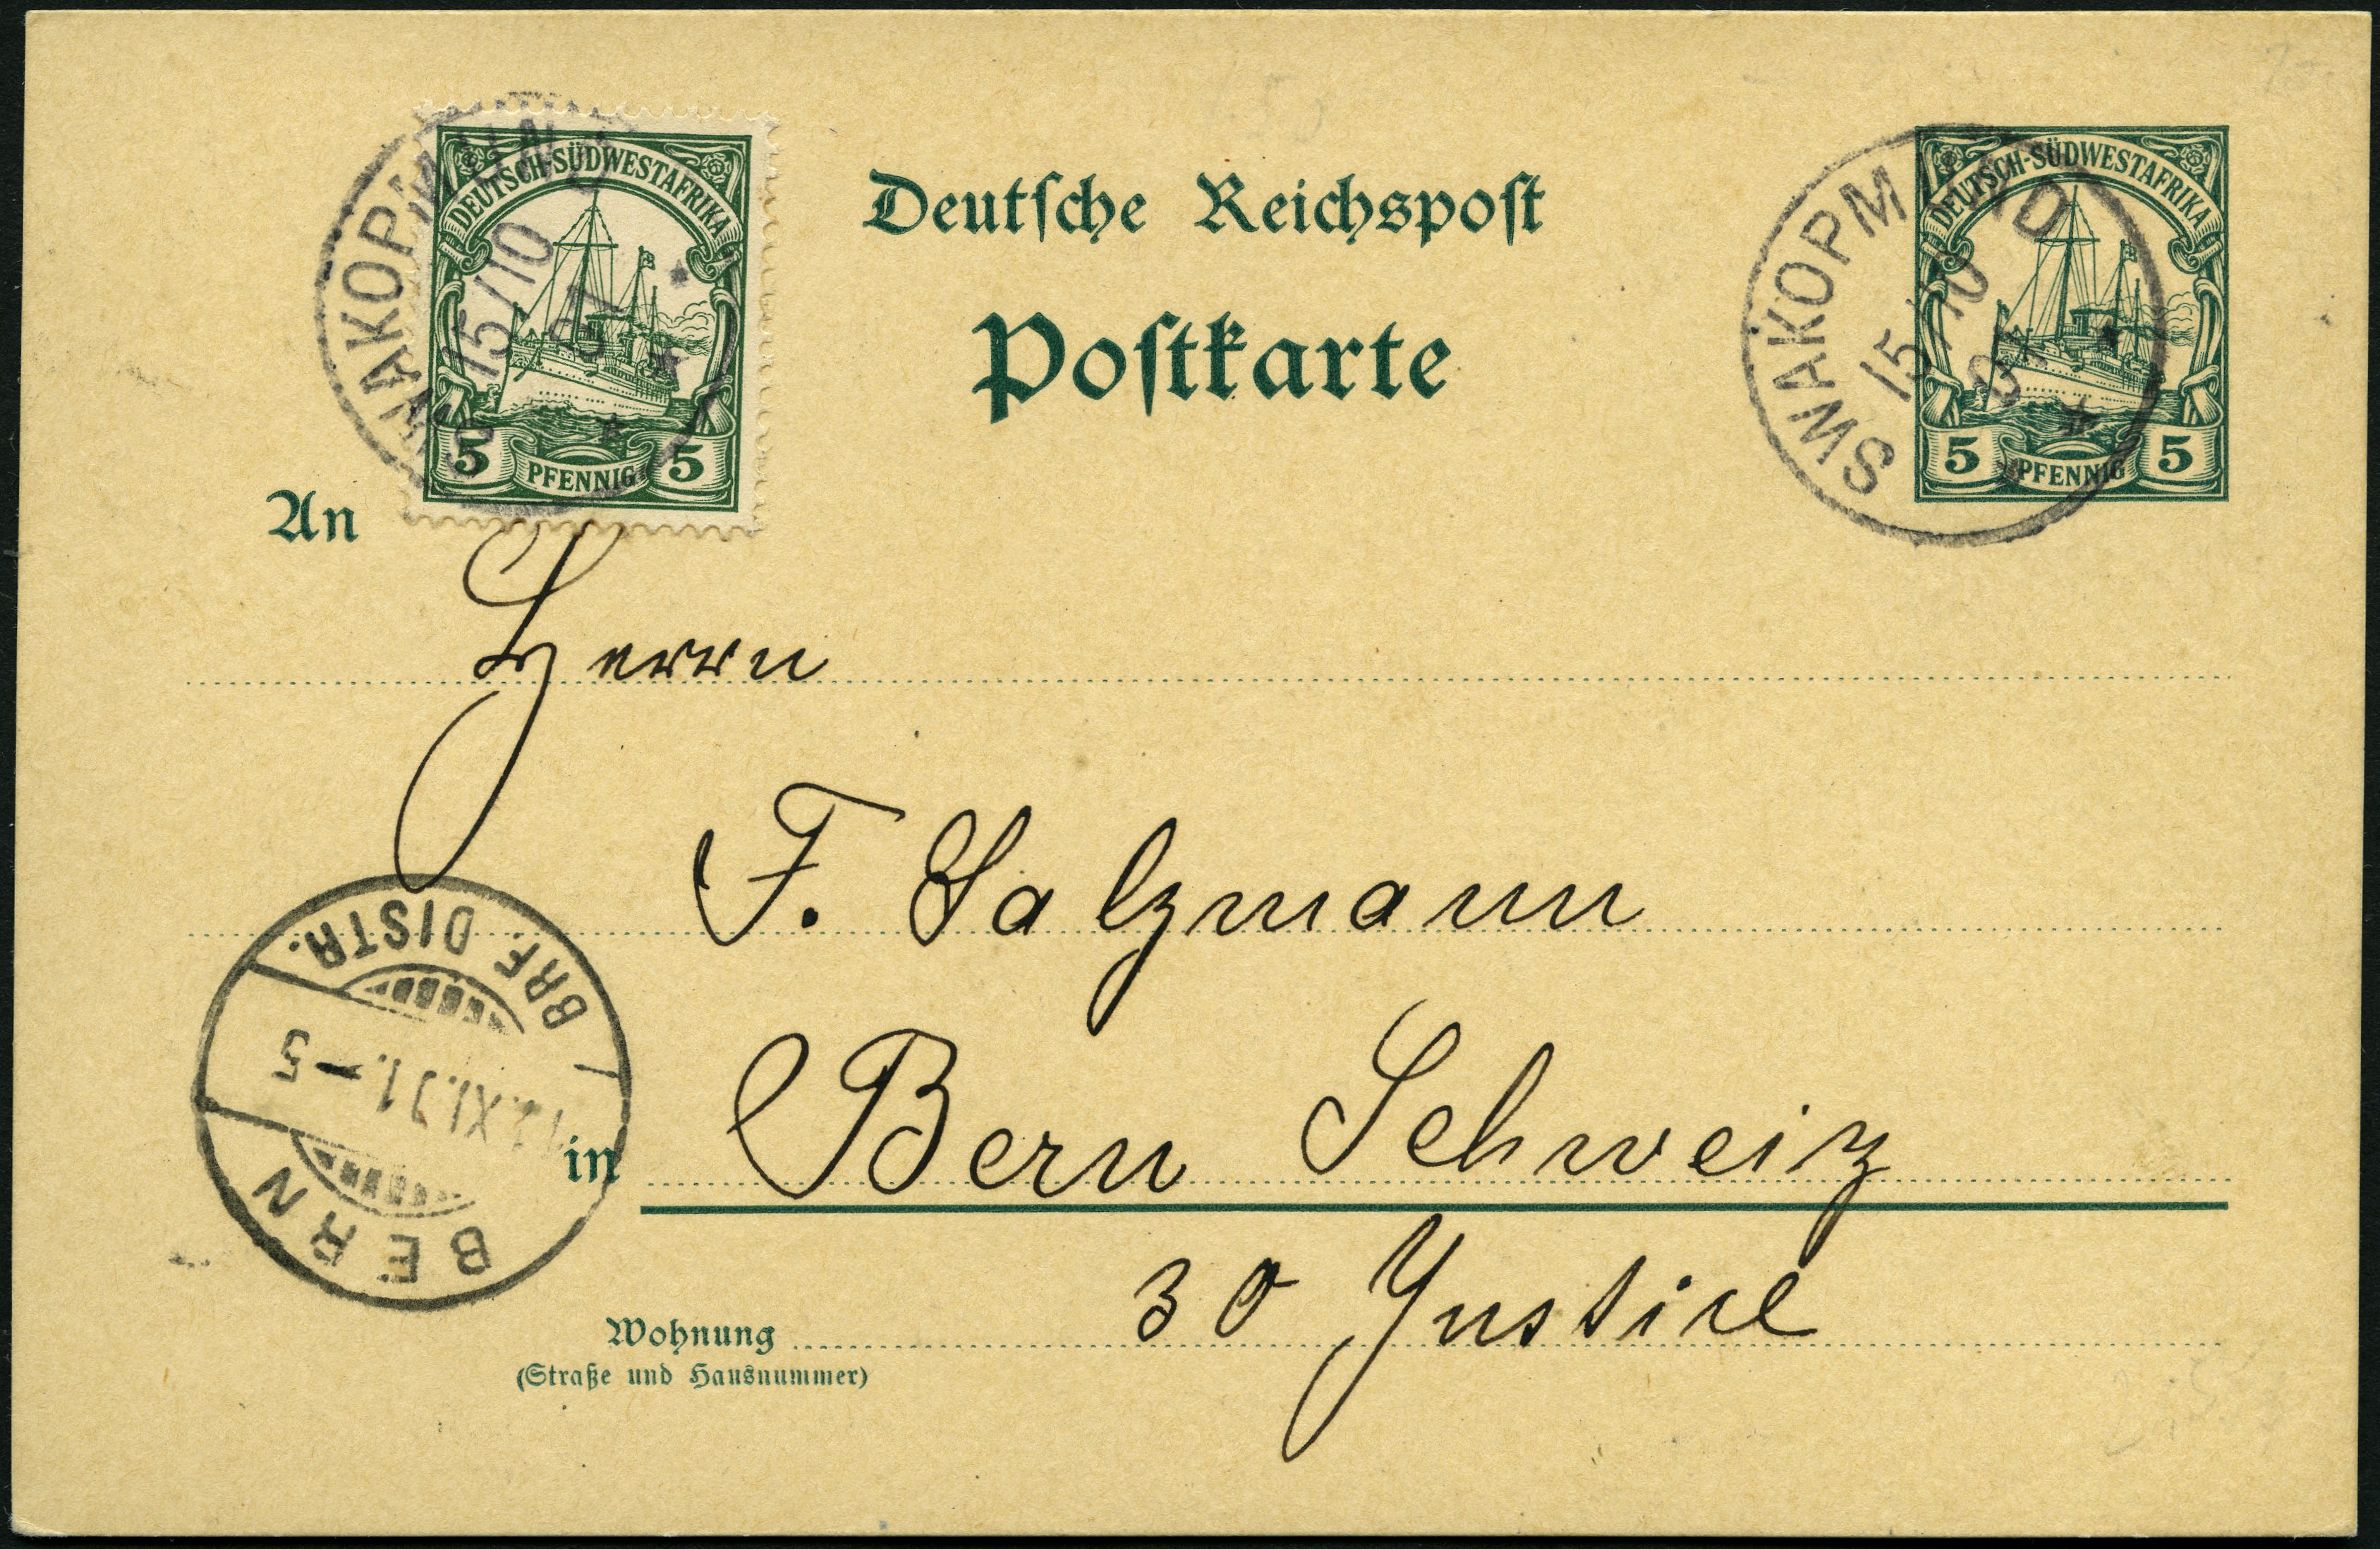 DEUTSCH-SÜDWESTAFRIKA
5 PFENNIG 5
SWAKOPMUND
15/10
01
Deutsche Reichspost
Postkarte
DEUTSCH-SÜDWESTAFRIKA
5 PFENNIG 5
SWAKOPMUND
15/10
01
An
Herrn
F. Salzmann
in Bern Schweiz
BERN
12.XI.01.–5
BRF. DISTR.
Wohnung 30 Justice
(Straße und Hausnummer)